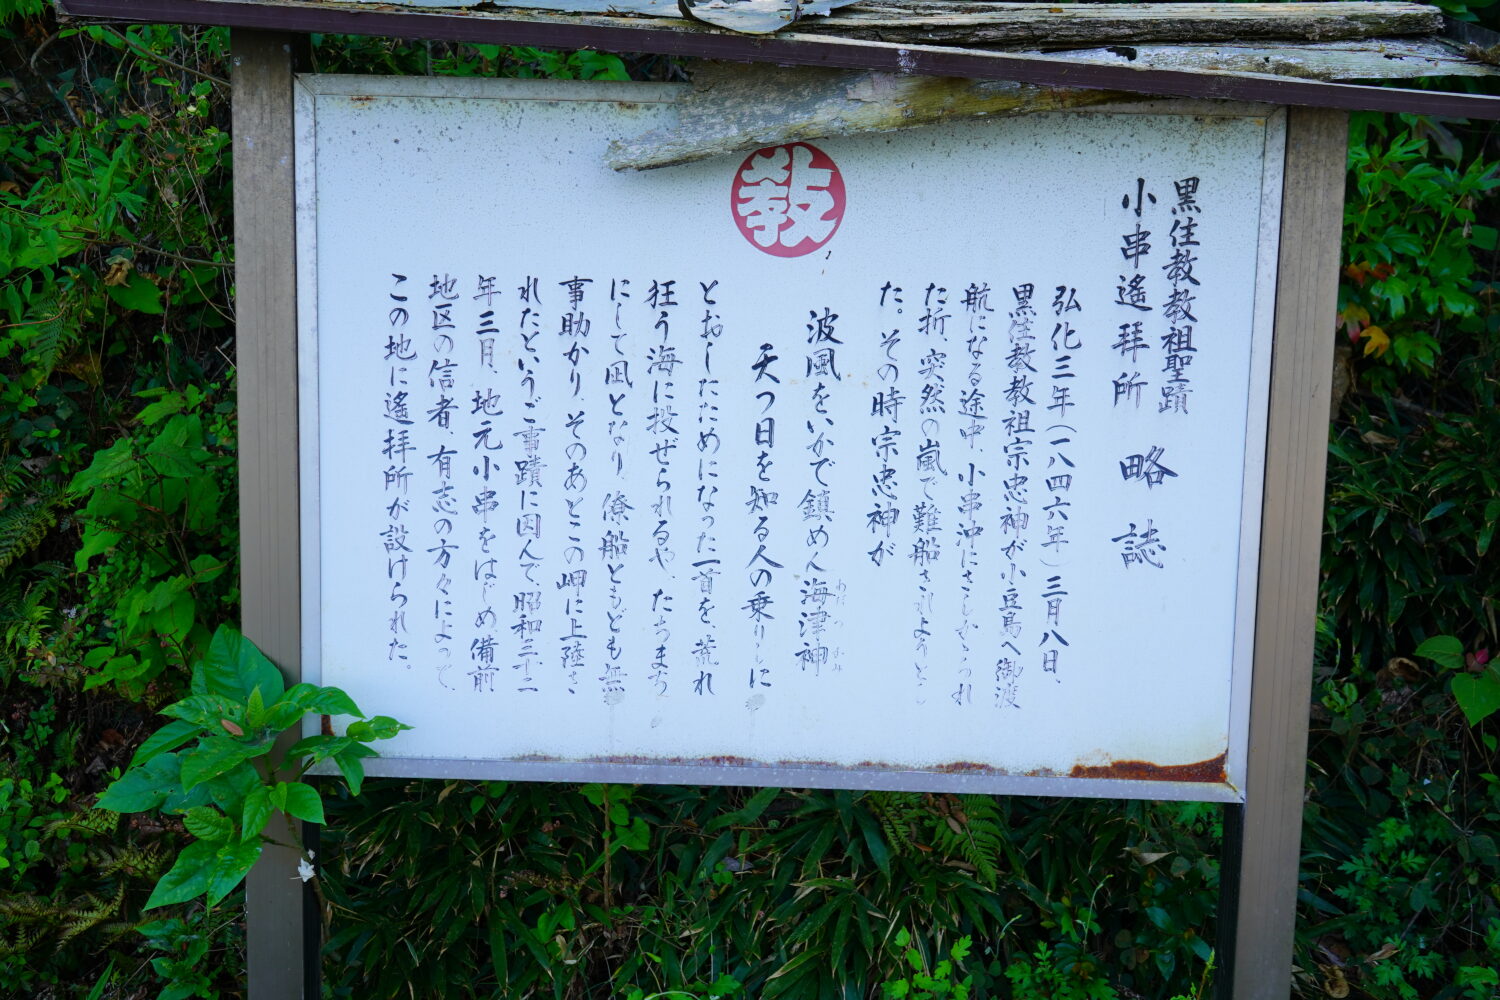 黒住教教祖聖蹟
小串遙拝所 略誌
弘化三年(一八四六年)三月八日、
黒住教教祖宗忠神が小豆島へ御渡
航になる途中、小串沖にさしかゝられ
た折、突然の嵐で難船されようとし
た。その時宗忠神が
波風をいかで鎮めん海津神
わたつかみ
天つ日を知る人の乗りしに
とおしたためになった一首を、荒れ
狂う海に投ぜられるや、たちまち
にして凪となり、僚船ともども無
事助かり、そのあとこの岬に上陸さ
れたというご事蹟に因んで、昭和三十二
年三月、地元小串をはじめ備前
地区の信者、有志の方々によって、
この地に遙拝所が設けられた。
教